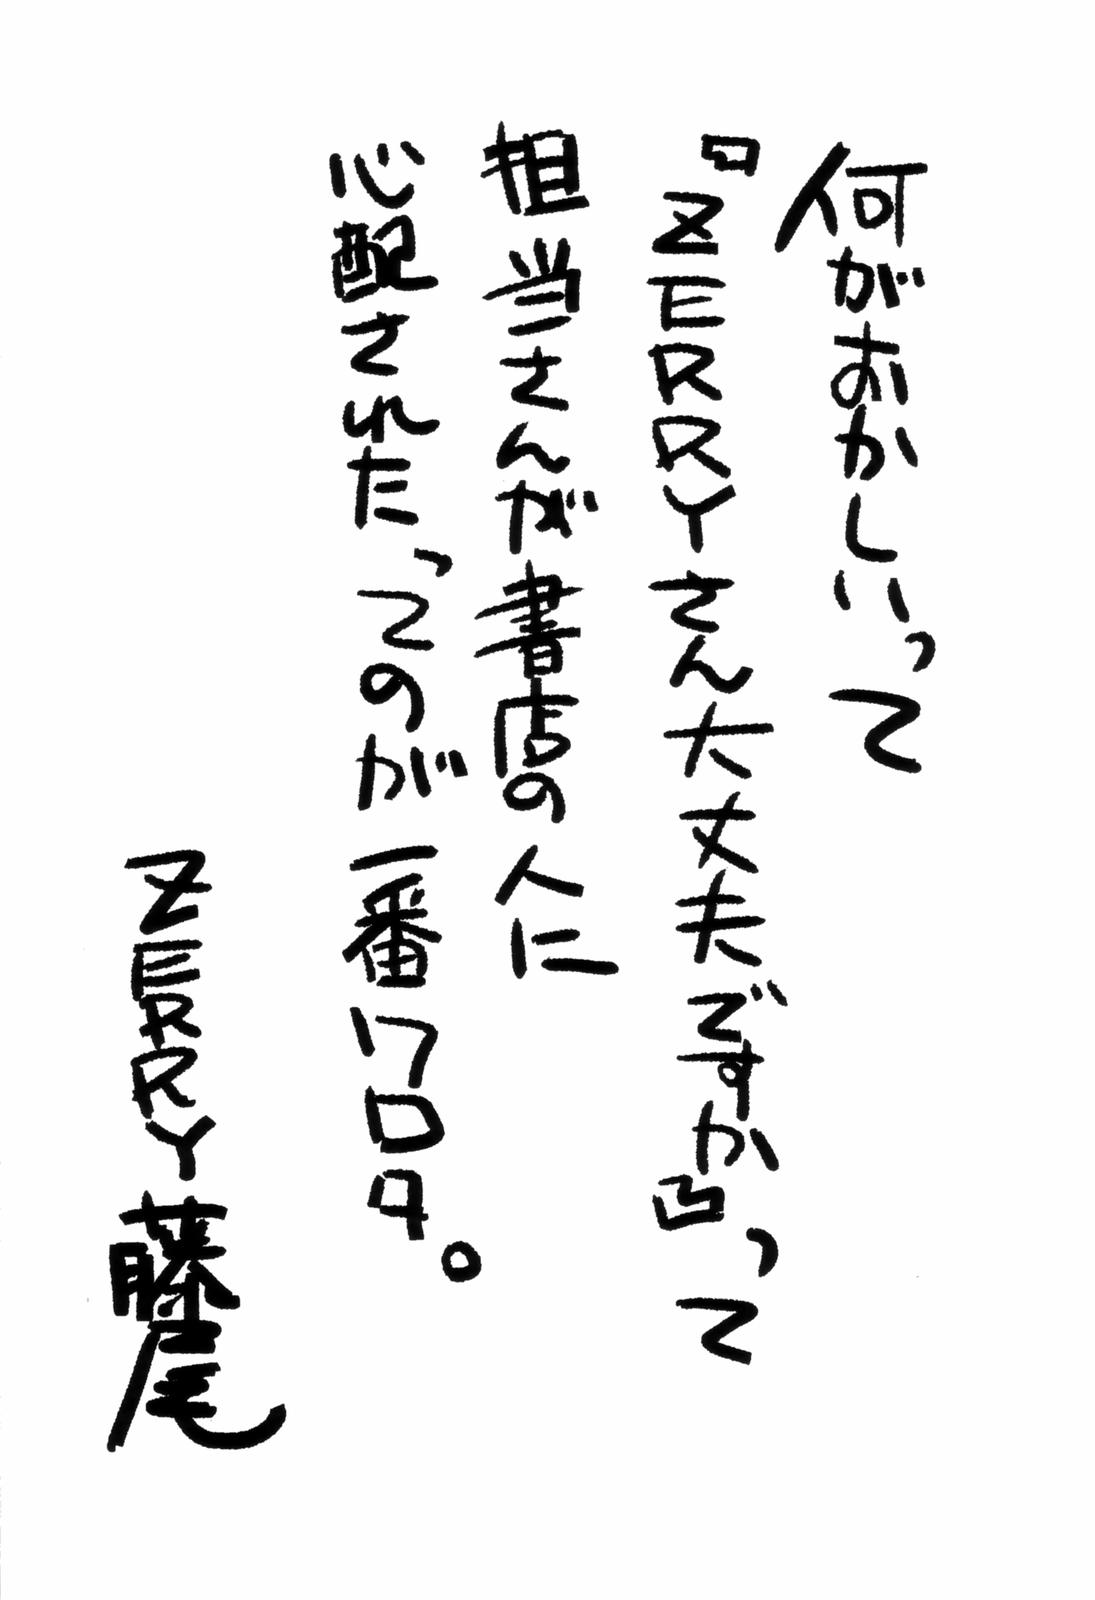 何がおかしいって
『ZERRYさん大丈夫ですか凹って
担当さんが書店の人に
心配されたってのが一番ワロタ。
ZERRY藤尾